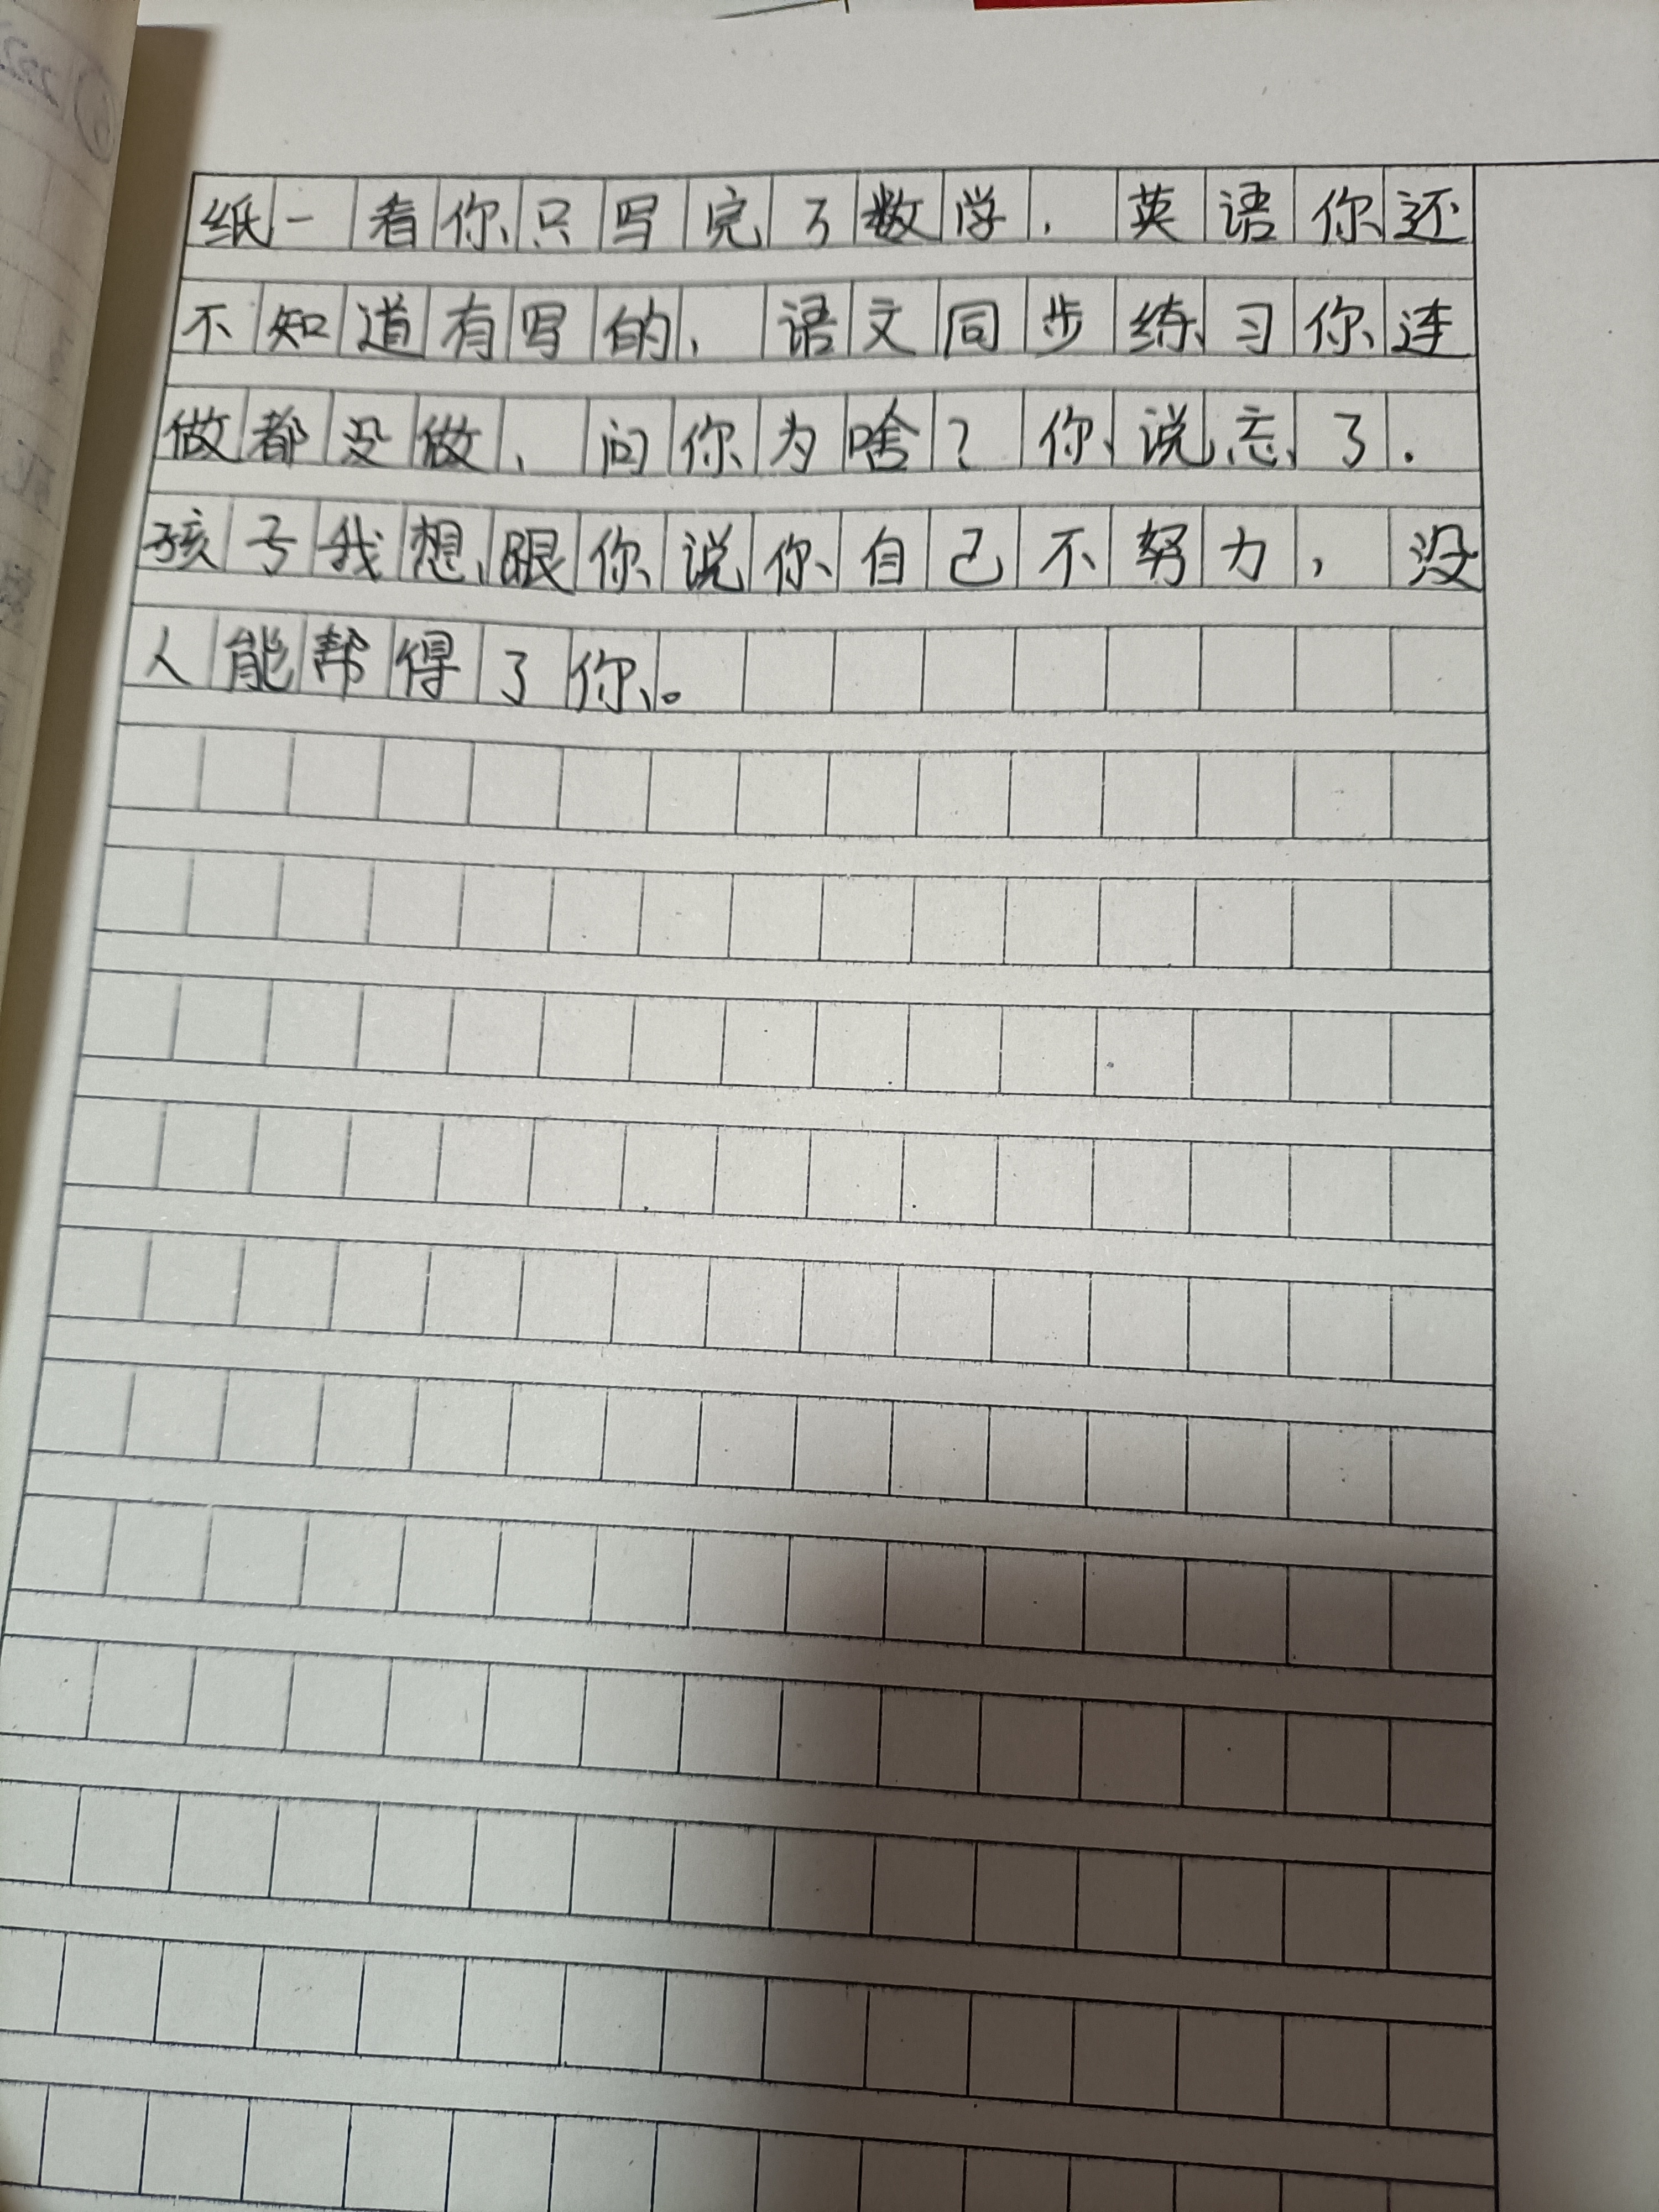 纸一看你只写完了数学，英语你还
不知道有写的，语文同步练习你连
做都没做，问你为啥？你说忘了.
孩子我想跟你说你自己不努力，没
人能帮得了你。